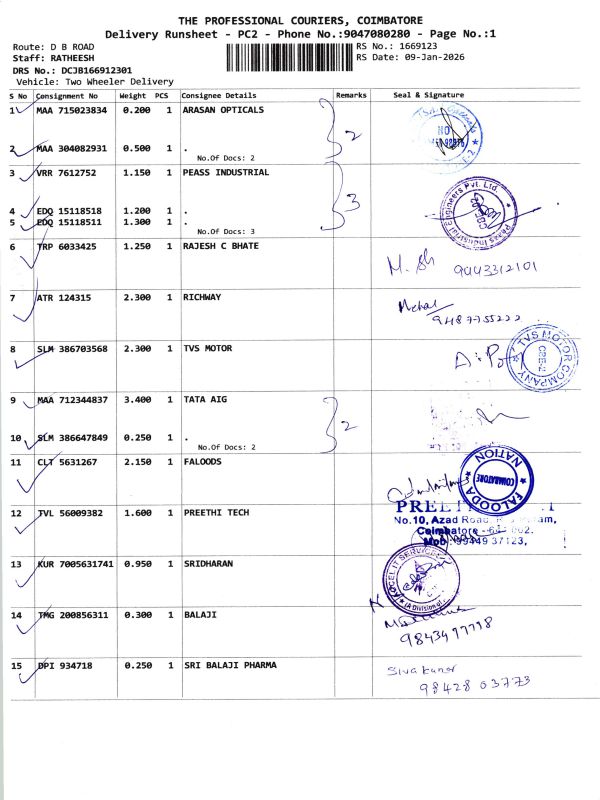 THE PROFESSIONAL COURIERS, COIMBATORE
Delivery Runsheet - PC2 - Phone No.:9047080280 - Page No.:1
Route: D B ROAD
RS No.: 1669123
Staff: RATHEESH
RS Date: 09-Jan-2026
DRS No.: DCJB166912301
Vehicle: Two Wheeler Delivery
S No Consignment No Weight PCS Consignee Details Remarks Seal & Signature
1 MAA 715023834 0.200 1 ARASAN OPTICALS
2
2 MAA 304082931 0.500 1 .
No.Of Docs: 2
3 VRR 7612752 1.150 1 PEASS INDUSTRIAL
Peass Industrial Engineers Pvt. Ltd.
3
4 EDQ 15118518 1.200 1 .
5 EDQ 15118511 1.300 1 .
No.Of Docs: 3
6 TRP 6033425 1.250 1 RAJESH C BHATE
9443312101
7 ATR 124315 2.300 1 RICHWAY
9487755222
8 SLM 386703568 2.300 1 TVS MOTOR
TVS MOTOR COMPANY
9 MAA 712344837 3.400 1 TATA AIG
2
10 SLM 386647849 0.250 1 .
No.Of Docs: 2
11 CLT 5631267 2.150 1 FALOODS
FALOODA NATION
COIMBATORE
12 TVL 56009382 1.600 1 PREETHI TECH
No.10, Azad Road,
Coimbatore
Mob 99449 37123,
13 KUR 7005631741 0.950 1 SRIDHARAN
IT SERVICES
(A Division of
14 TMG 200856311 0.300 1 BALAJI
15 DPI 934718 0.250 1 SRI BALAJI PHARMA
Sivakumar
98428 03773